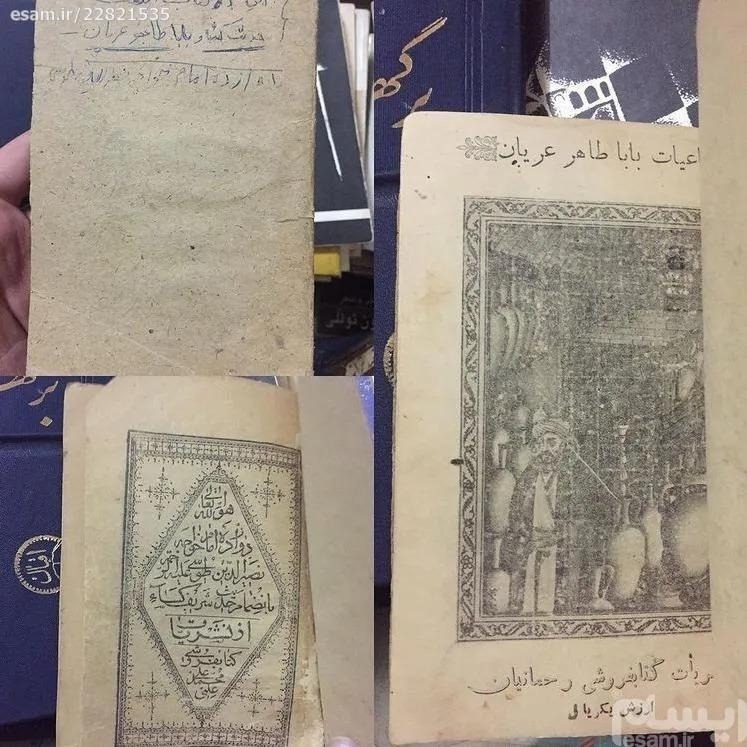 esam.ir/22821535
حدیث کساء و بابا طاهر عریان
اعیات بابا طاهر عریان
هو الله تعالی
دوازده امام خواجه
نصیرالدین طوسی علیه
بانضمام حدیث شریف کساء
از نشریات
کتابفروشی
محمد علی
علمی
ریات کتابفروشی رحمانیان
ارزش یکریال
ایسام
esam.ir